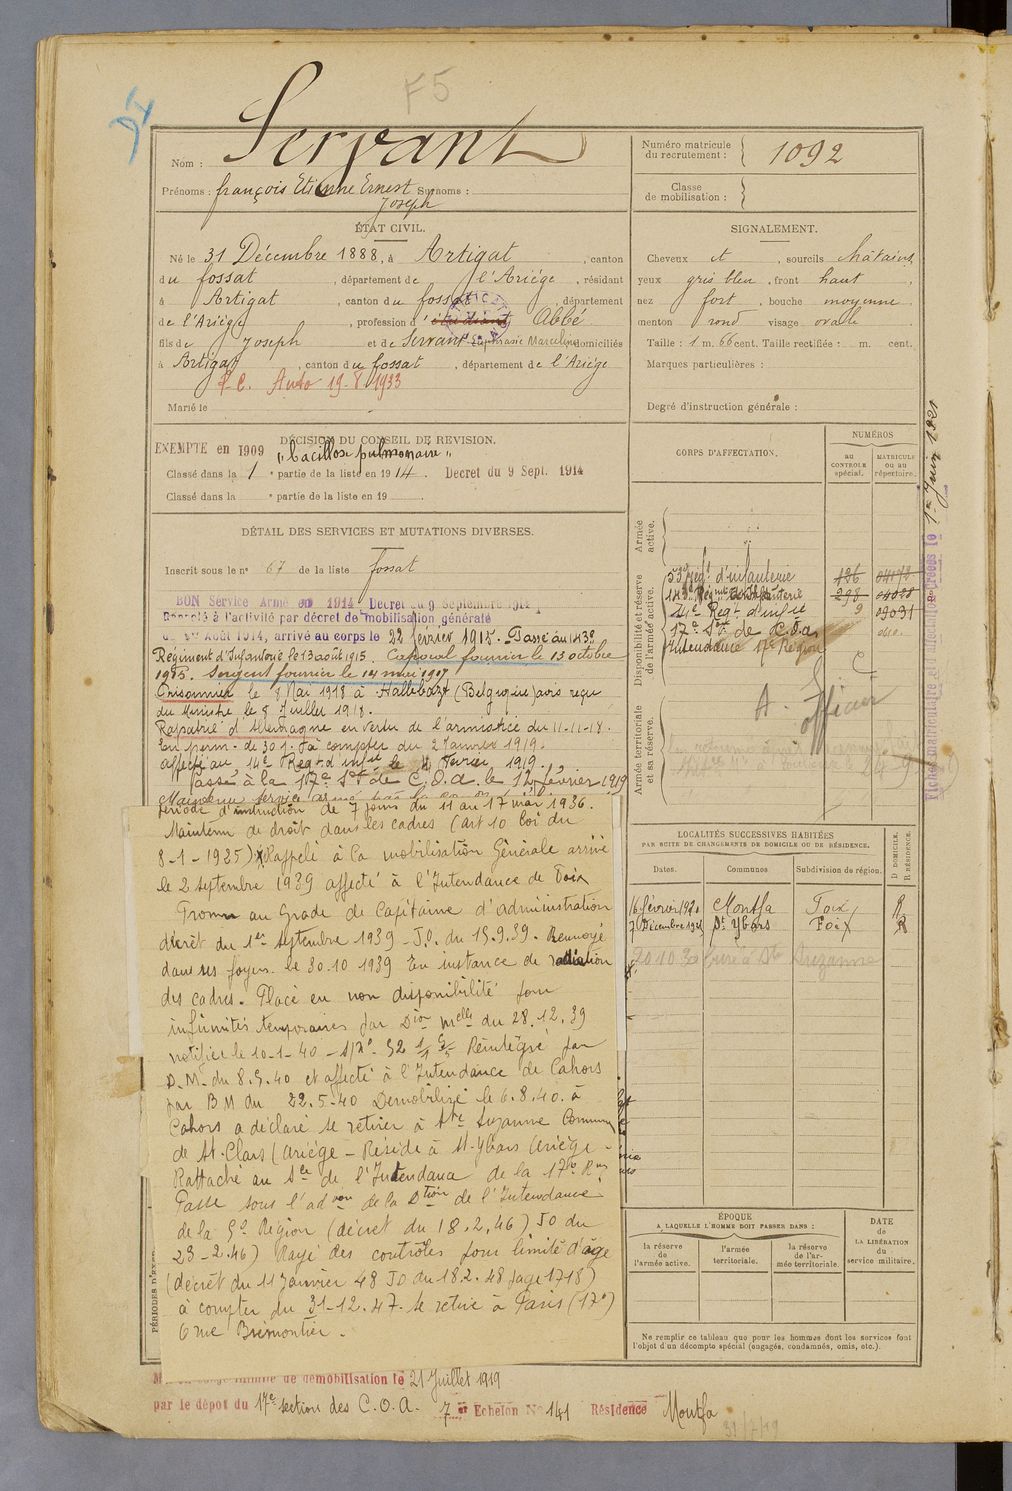 F5
Servant
Nom :
Prénoms : François Etienne Ernest Surnoms :
Joseph
Numéro matricule
du recrutement :
1092
Classe
de mobilisation :
ÉTAT CIVIL.
Né le 31 Décembre 1888, à Artigat, canton
du fossat, département de l'Ariège, résidant
à Artigat, canton du fossat, département
de l'Ariège, profession d'étudiant Abbé
fils de Joseph et de Servant Euphrasie Marceline domiciliés
à Artigat, canton du fossat, département de l'Ariège
P.C. Auto 19-8-1933
Marié le
SIGNALEMENT.
Cheveux et, sourcils châtains,
yeux gris bleu, front haut
nez fort, bouche moyenne,
menton rond visage ovale
Taille : 1 m. 66 cent. Taille rectifiée : m. cent.
Marques particulières :
Degré d'instruction générale :
DÉCISION DU CONSEIL DE REVISION.
EXEMPTE en 1909 "bacillose pulmonaire"
Classé dans la 1e partie de la liste en 1914. Decret du 9 Sept. 1914
Classé dans la e partie de la liste en 19
DÉTAIL DES SERVICES ET MUTATIONS DIVERSES.
Inscrit sous le no 67 de la liste fossat
BON Service Armé en 1914 Decret du 9 Septembre 1914
Rappelé à l'activité par décret de mobilisation générale
du 1er Août 1914, arrivé au corps le 22 février 1915. Passé au 143e
Régiment d'Infanterie le 13 août 1915. Caporal fourrier le 13 octobre
1915. Sergent fourrier le 14 mai 1917
Prisonnier le 8 Mai 1918 à Hallebast (Belgique) avis reçu
du Ministre le 8 Juillet 1918.
Rapatrié d'Allemagne en vertu de l'armistice du 11-11-18.
En perm. de 30 j. à compter du 2 Janvier 1919.
affecté au 14e Regt d'infie le 11 Février 1919.
Passé à la 17e Son de C.O.A. le 12 février 1919
période d'instruction de 7 jours du 11 au 17 mai 1936.
Maintenu de droit dans les cadres (art 10 loi du
8-1-1925) Rappelé à la mobilisation Générale arrivé
le 2 septembre 1939 affecté à l'Intendance de Foix
Promu au Grade de Capitaine d'administration
décrêt du 1er septembre 1939 - J.O. du 15.9.39. Renvoyé
dans ses foyers le 30.10 1939 En instance de radiation
des cadres. Placé en non disponibilité pour
infirmités temporaires par Dion melle du 28.12.39
notifiée le 10-1-40 Réintégré par
D.M. du 8.5.40 et affecté à l'Intendance de Cahors
par BM du 22.5.40 Demobilisé le 6.8.40. à
Cahors a déclaré se retirer à Ste Suzanne Commune
de St-Clars (Ariége - Réside à St-Ybars Ariège -
Rattaché au Sce de l'Intendance de la 17e Ron
Passe sous l'adon de la Dtion de l'Intendance
de la 5e Région (décret du 18.2.46) JO du
23-2.46) Rayé des contrôles pour limite d'âge
(décrêt du 11 Janvier 48 JO du 18.2.48 page 1718)
à compter du 31-12.47. Se retire à Paris (17e)
6 rue Brémontier.
CORPS D'AFFECTATION.
NUMÉROS
AU CONTROLE spécial.
MATRICULE ou au répertoire.
Armée active.
Disponibilité et réserve de l'armée active.
53e Régt d'infanterie 186
143e Régiment d'infanterie 298
14e Regt d'infie 9 09031
17e Son de C.O.A.
Intendance 17e Région
Armée territoriale et sa réserve.
A. officier
1er Juin 1921
LOCALITÉS SUCCESSIVES HABITÉES
PAR SUITE DE CHANGEMENTS DE DOMICILE OU DE RÉSIDENCE.
Dates. Communes Subdivision de région. D. DOMICILE. R. RÉSIDENCE.
16 février 1920 Montfa Foix R
7 Décembre 1921 St Ybars Foix R
20 10 30 curé à Ste Suzanne
ÉPOQUE
A LAQUELLE L'HOMME DOIT PASSER DANS :
la réserve de l'armée active.
l'armée territoriale.
la réserve de l'armée territoriale.
DATE de LA LIBÉRATION du service militaire.
Ne remplir ce tableau que pour les hommes dont les services font
l'objet d'un décompte spécial (engagés, condamnés, omis, etc.).
de démobilisation le 21 Juillet 1919
par le dépôt du 17e section des C.O.A. 7e Echelon No 141 Résidence Montfa
31/7/19